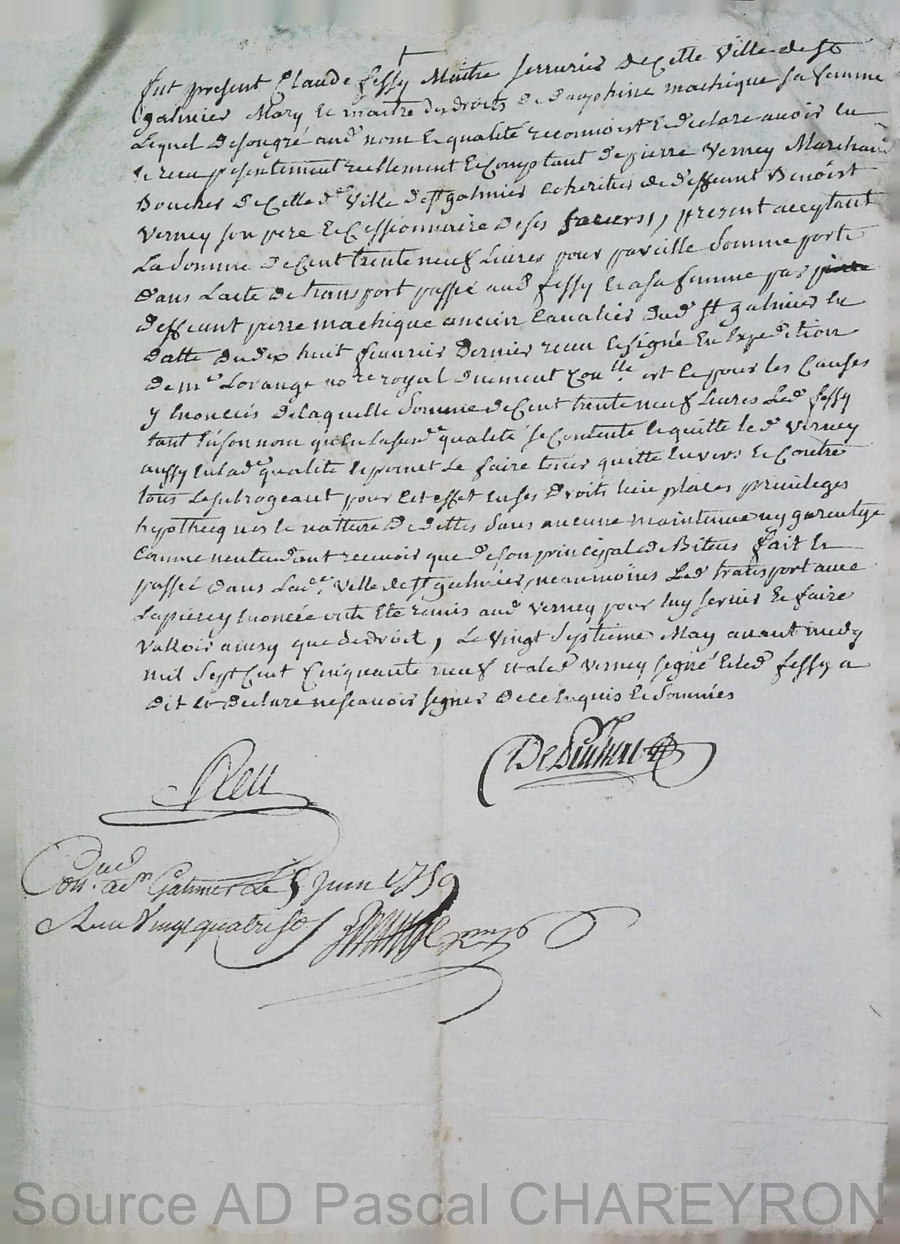 fut present Claude fessy Maitre serrurier de Cette Ville de st
galmier Mary et maitre des droits de dauphine machique sa femme
Lequel de son gré aud nom et qualité reconnoist et declare avoir eu
et receu presentement reellement et Comptant de pierre Verney Marchand
Boucher de Cette de Ville de st galmier coheritier de deffeunt Benoist
Verney son pere et Cessionnaire de ses , present acceptant
La somme de Cent trente neuf Livres pour pareille somme porté
dans Lacte de transport passée aud fessy et a sa femme par
deffeunt pierre machique ancien Cavalier dud st galmier en
datte du dix huit feuvrier dernier receu et signé En Expedition
de me Lorange nore royal duement Conlle et ce pour les Causes
y Enoncés de laquelle somme de Cent trente neuf Livres Led fessy
tant En son nom qu'En sa susde qualité se Contente et quitte led Verney
aussy En lade qualité et promet Le faire tenir quitte Envers et Contre
tous Le subrogeant pour Cet effet En ses droits lieu places privileges
hypothecques et natture de dettes sans aucune maintenue ny garentye
Comme nentendant recevoir que de son principal et Bitens fait et
passée dans Lade Ville de st galmier, neanmoins Led transport avec
La piecey Enonée ont Eté remis aud Verney pour luy servir et faire
Valloir ainsy que de droit, Le vingt septieme May avant midy
mil sept Cent Cinquante neuf et a led Verney segné et led fessy a
dit et declare ne scavoir segner de ce Enquis et sommées
Con. a st Galmier Le 5 Juin 1759
Receu Vingt quatre sols
Source AD Pascal CHAREYRON